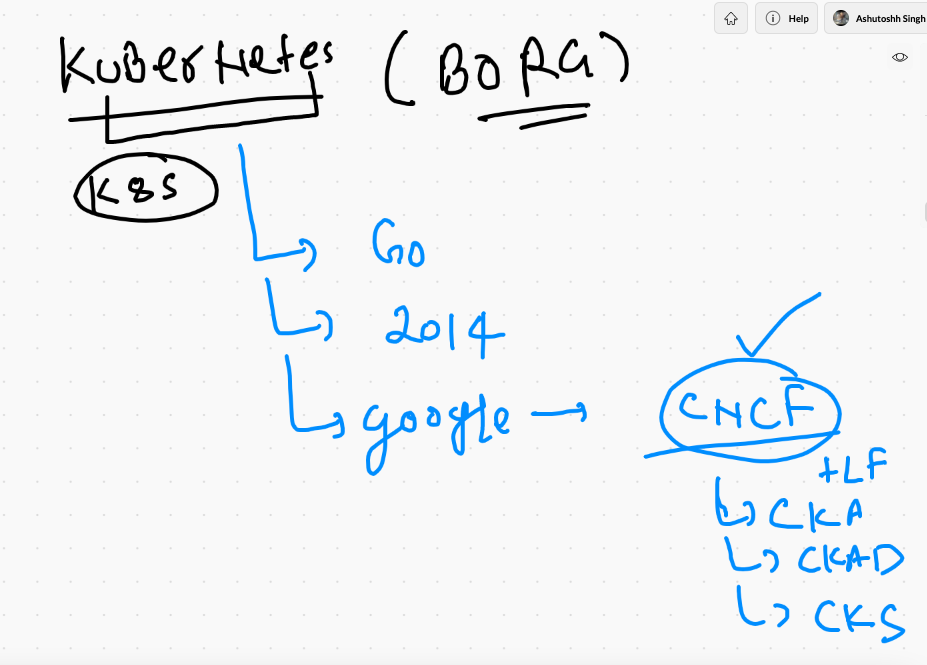 Help Ashutoshh Singh
KuBerNetes (BORG)
K8S
Go
2014
google → CNCF
+LF
CKA
CKAD
CKS